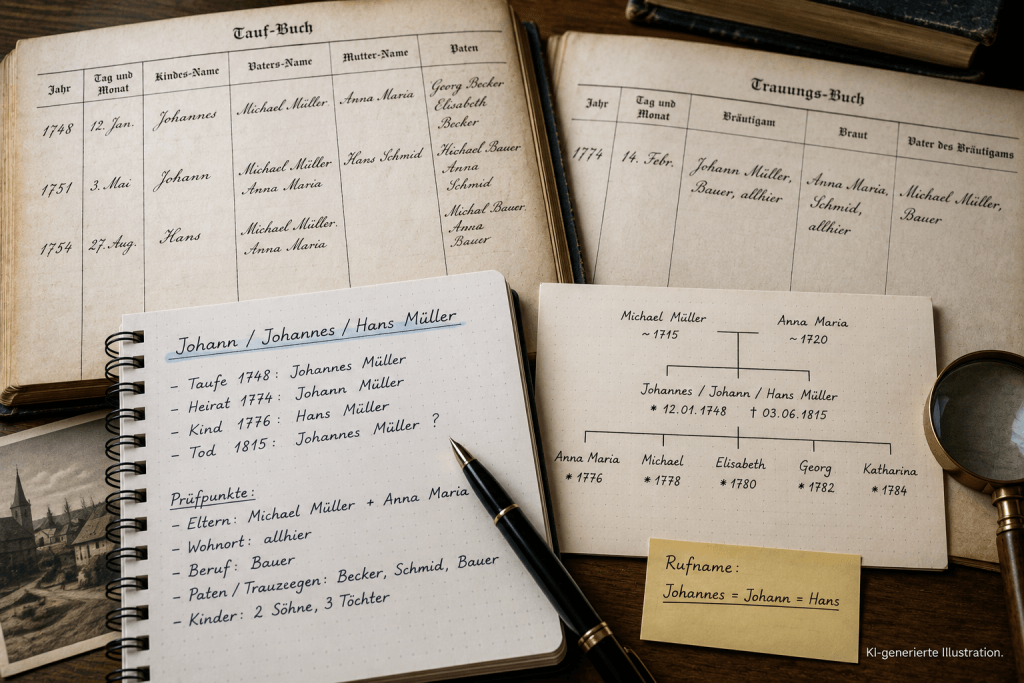 Tauf-Buch
Jahr
Tag und
Monat
Kindes-Name
Vaters-Name
Mutter-Name
Paten
1748
12. Jan.
Johannes
Michael Müller
Anna Maria
Georg Becker
Elisabeth
Becker
1751
3. Mai
Johann
Michael Müller
Anna Maria
Hans Schmid
Hichael Bauer
Anna
Schmid
1754
27. Aug.
Hans
Michael Müller.
Anna Maria
Michal Bauer.
Anna
Bauer
Trauungs-Buch
Jahr
Tag und
Monat
Bräutigam
Braut
Vater des Bräutigams
1774
14. Febr.
Johann Müller,
Bauer, allhier
Anna Maria,
Schmid,
allhier
Michael Müller,
Bauer
Johann / Johannes / Hans Müller
– Taufe 1748: Johannes Müller
– Heirat 1774: Johann Müller
– Kind 1776: Hans Müller
– Tod 1815: Johannes Müller ?
Prüfpunkte:
– Eltern: Michael Müller + Anna Maria
– Wohnort: allhier
– Beruf: Bauer
– Paten / Trauzcegen: Becker, Schmid, Bauer
– Kinder: 2 Söhne, 3 Töchter
Michael Müller
~ 1715
Anna Maria
~ 1720
Johannes / Johann / Hans Müller
* 12.01.1748 † 03.06.1815
Anna Maria
* 1776
Michael
* 1778
Elisabeth
* 1780
Georg
* 1782
Katharina
* 1784
Rufname:
Johannes = Johann = Hans
KI-generierte Illustration.